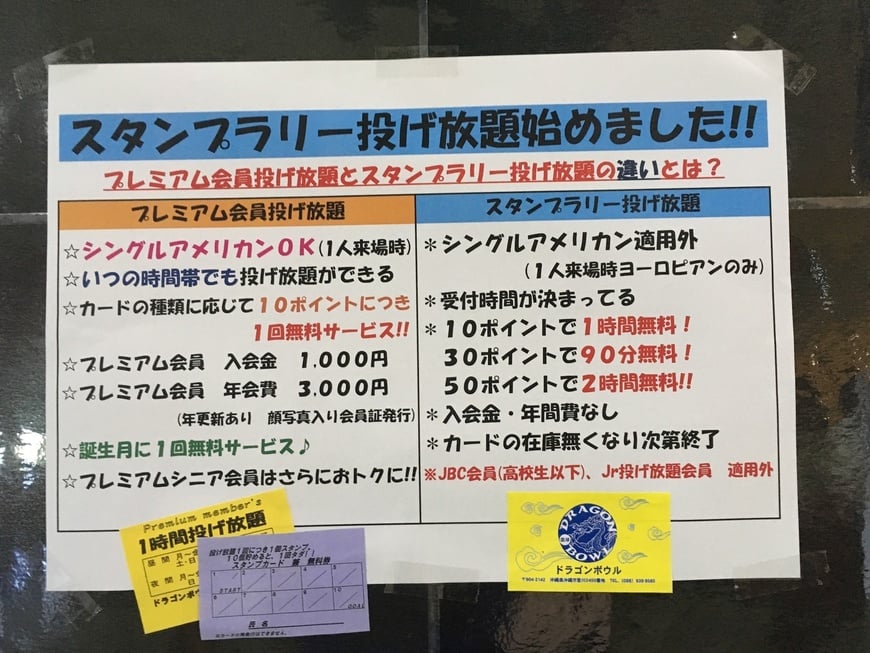 スタンプラリー投げ放題始めました!!
プレミアム会員投げ放題とスタンプラリー投げ放題の違いとは？
プレミアム会員投げ放題
☆シングルアメリカンＯＫ(1人来場時)
☆いつの時間帯でも投げ放題ができる
☆カードの種類に応じて１０ポイントにつき
１回無料サービス!!
☆プレミアム会員　入会金　１,０００円
☆プレミアム会員　年会費　３,０００円
(年更新あり　顔写真入り会員証発行)
☆誕生月に１回無料サービス♪
☆プレミアムシニア会員はさらにおトクに!!
スタンプラリー投げ放題
＊シングルアメリカン適用外
(１人来場時ヨーロピアンのみ)
＊受付時間が決まってる
＊１０ポイントで１時間無料！
３０ポイントで９０分無料！
５０ポイントで２時間無料!!
＊入会金・年間費なし
＊カードの在庫無くなり次第終了
※JBC会員(高校生以下)、Jr投げ放題会員　適用外
Premium member's
1時間投げ放題
昼間 月～
土・日
夜間 月～
日
ドラゴンボウ
投げ放題1回につき1個スタンプ。
10個貯めると、1回タダ！
スタンプカード 兼 無料券
1 2 3 4 5
START
6 7 8 9 10
GOAL
氏名
DRAGON
BOWL
ドラゴンボウル
〒904-2142